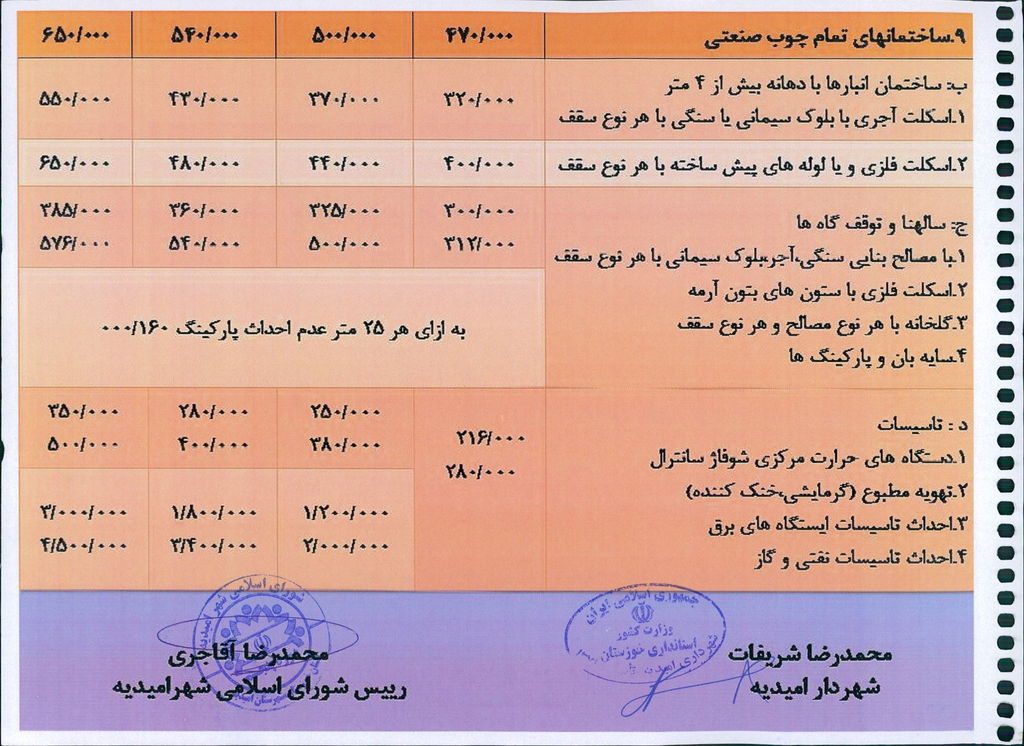 ۹.ساختمانهای تمام چوب صنعتی ۴۷۰/۰۰۰ ۵۰۰/۰۰۰ ۵۴۰/۰۰۰ ۶۵۰/۰۰۰
ب: ساختمان انبارها با دهانه بیش از ۴ متر
۱.اسکلت آجری با بلوک سیمانی یا سنگی با هر نوع سقف ۳۲۰/۰۰۰ ۳۷۰/۰۰۰ ۴۳۰/۰۰۰ ۵۵۰/۰۰۰
۲.اسکلت فلزی و یا لوله های پیش ساخته با هر نوع سقف ۴۰۰/۰۰۰ ۴۴۰/۰۰۰ ۴۸۰/۰۰۰ ۶۵۰/۰۰۰
ج: سالهنا و توقف گاه ها
۱.با مصالح بنایی سنگی،آجر،بلوک سیمانی با هر نوع سقف
۲.اسکلت فلزی با ستون های بتون آرمه
۳.گلخانه با هر نوع مصالح و هر نوع سقف
۴.سایه بان و پارکینگ ها
۳۰۰/۰۰۰ ۳۲۵/۰۰۰ ۳۶۰/۰۰۰ ۳۸۵/۰۰۰
۳۱۲/۰۰۰ ۵۰۰/۰۰۰ ۵۴۰/۰۰۰ ۵۷۶/۰۰۰
به ازای هر ۲۵ متر عدم احداث پارکینگ ۰۰۰/۱۶۰
د : تاسیسات
۱.دستگاه های حرارت مرکزی شوفاژ سانترال
۲.تهویه مطبوع (گرمایشی،خنک کننده)
۳.احداث تاسیسات ایستگاه های برق
۴.احداث تاسیسات نفتی و گاز
۲۱۶/۰۰۰ ۲۵۰/۰۰۰ ۲۸۰/۰۰۰ ۳۵۰/۰۰۰
۲۸۰/۰۰۰ ۳۸۰/۰۰۰ ۴۰۰/۰۰۰ ۵۰۰/۰۰۰
۱/۲۰۰/۰۰۰ ۱/۸۰۰/۰۰۰ ۳/۰۰۰/۰۰۰
۲/۰۰۰/۰۰۰ ۳/۴۰۰/۰۰۰ ۴/۵۰۰/۰۰۰
جمهوری اسلامی ایران
وزارت کشور
استانداری خوزستان
محمدرضا شریفات
شهردار امیدیه
شورای اسلامی شهر امیدیه
محمدرضا آقاجری
رییس شورای اسلامی شهرامیدیه